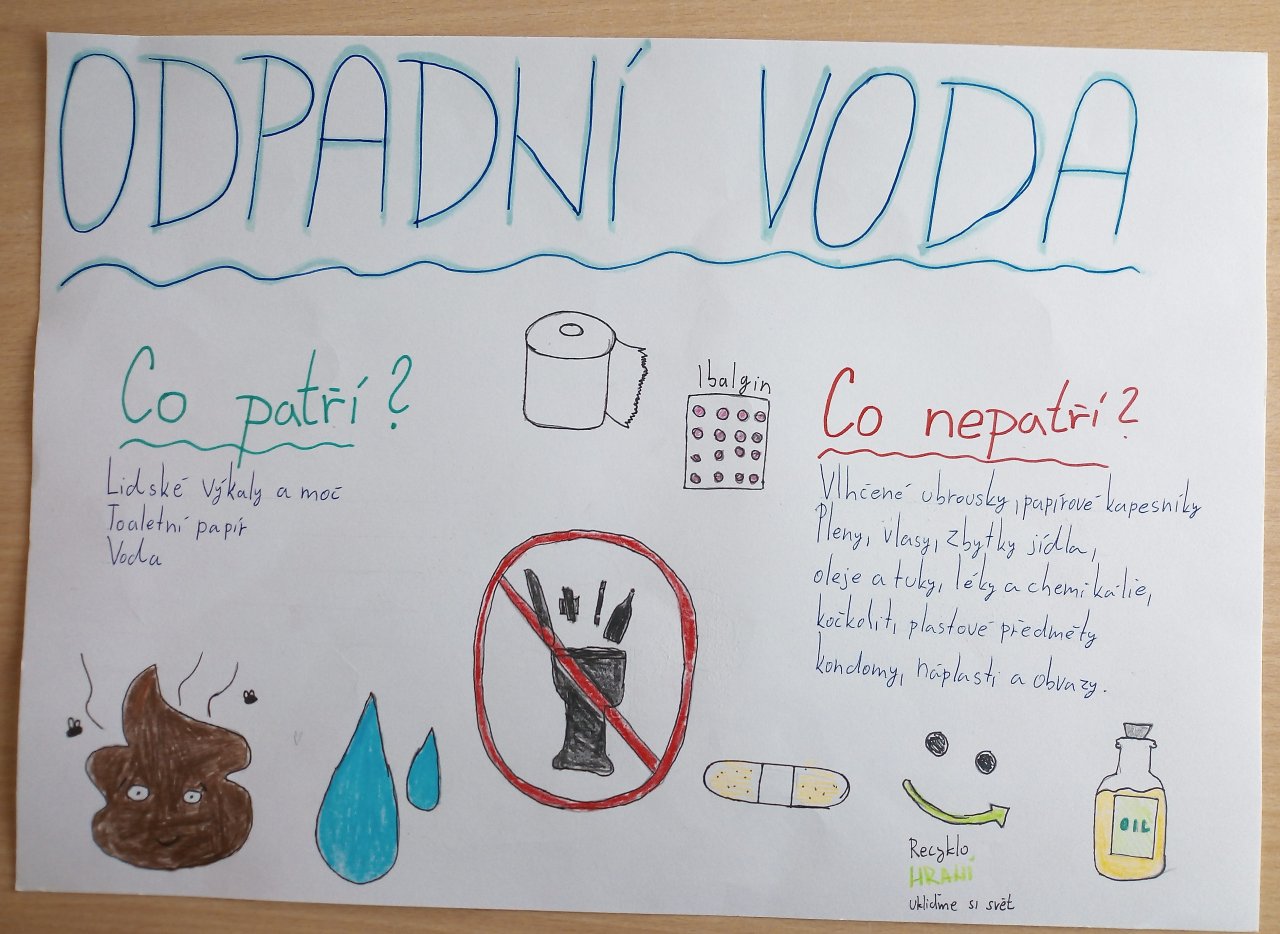 ODPADNÍ VODA
Co patří?
Lidské výkaly a moč
Toaletní papír
Voda
Ibalgin
Co nepatří?
Vlhčené ubrousky, papírové kapesníky
Pleny, vlasy, zbytky jídla,
oleje a tuky, léky a chemikálie,
kočkolit, plastové předměty
kondomy, náplasti a obvazy.
OIL
Recyklo
HRANÍ
ukliďme si svět